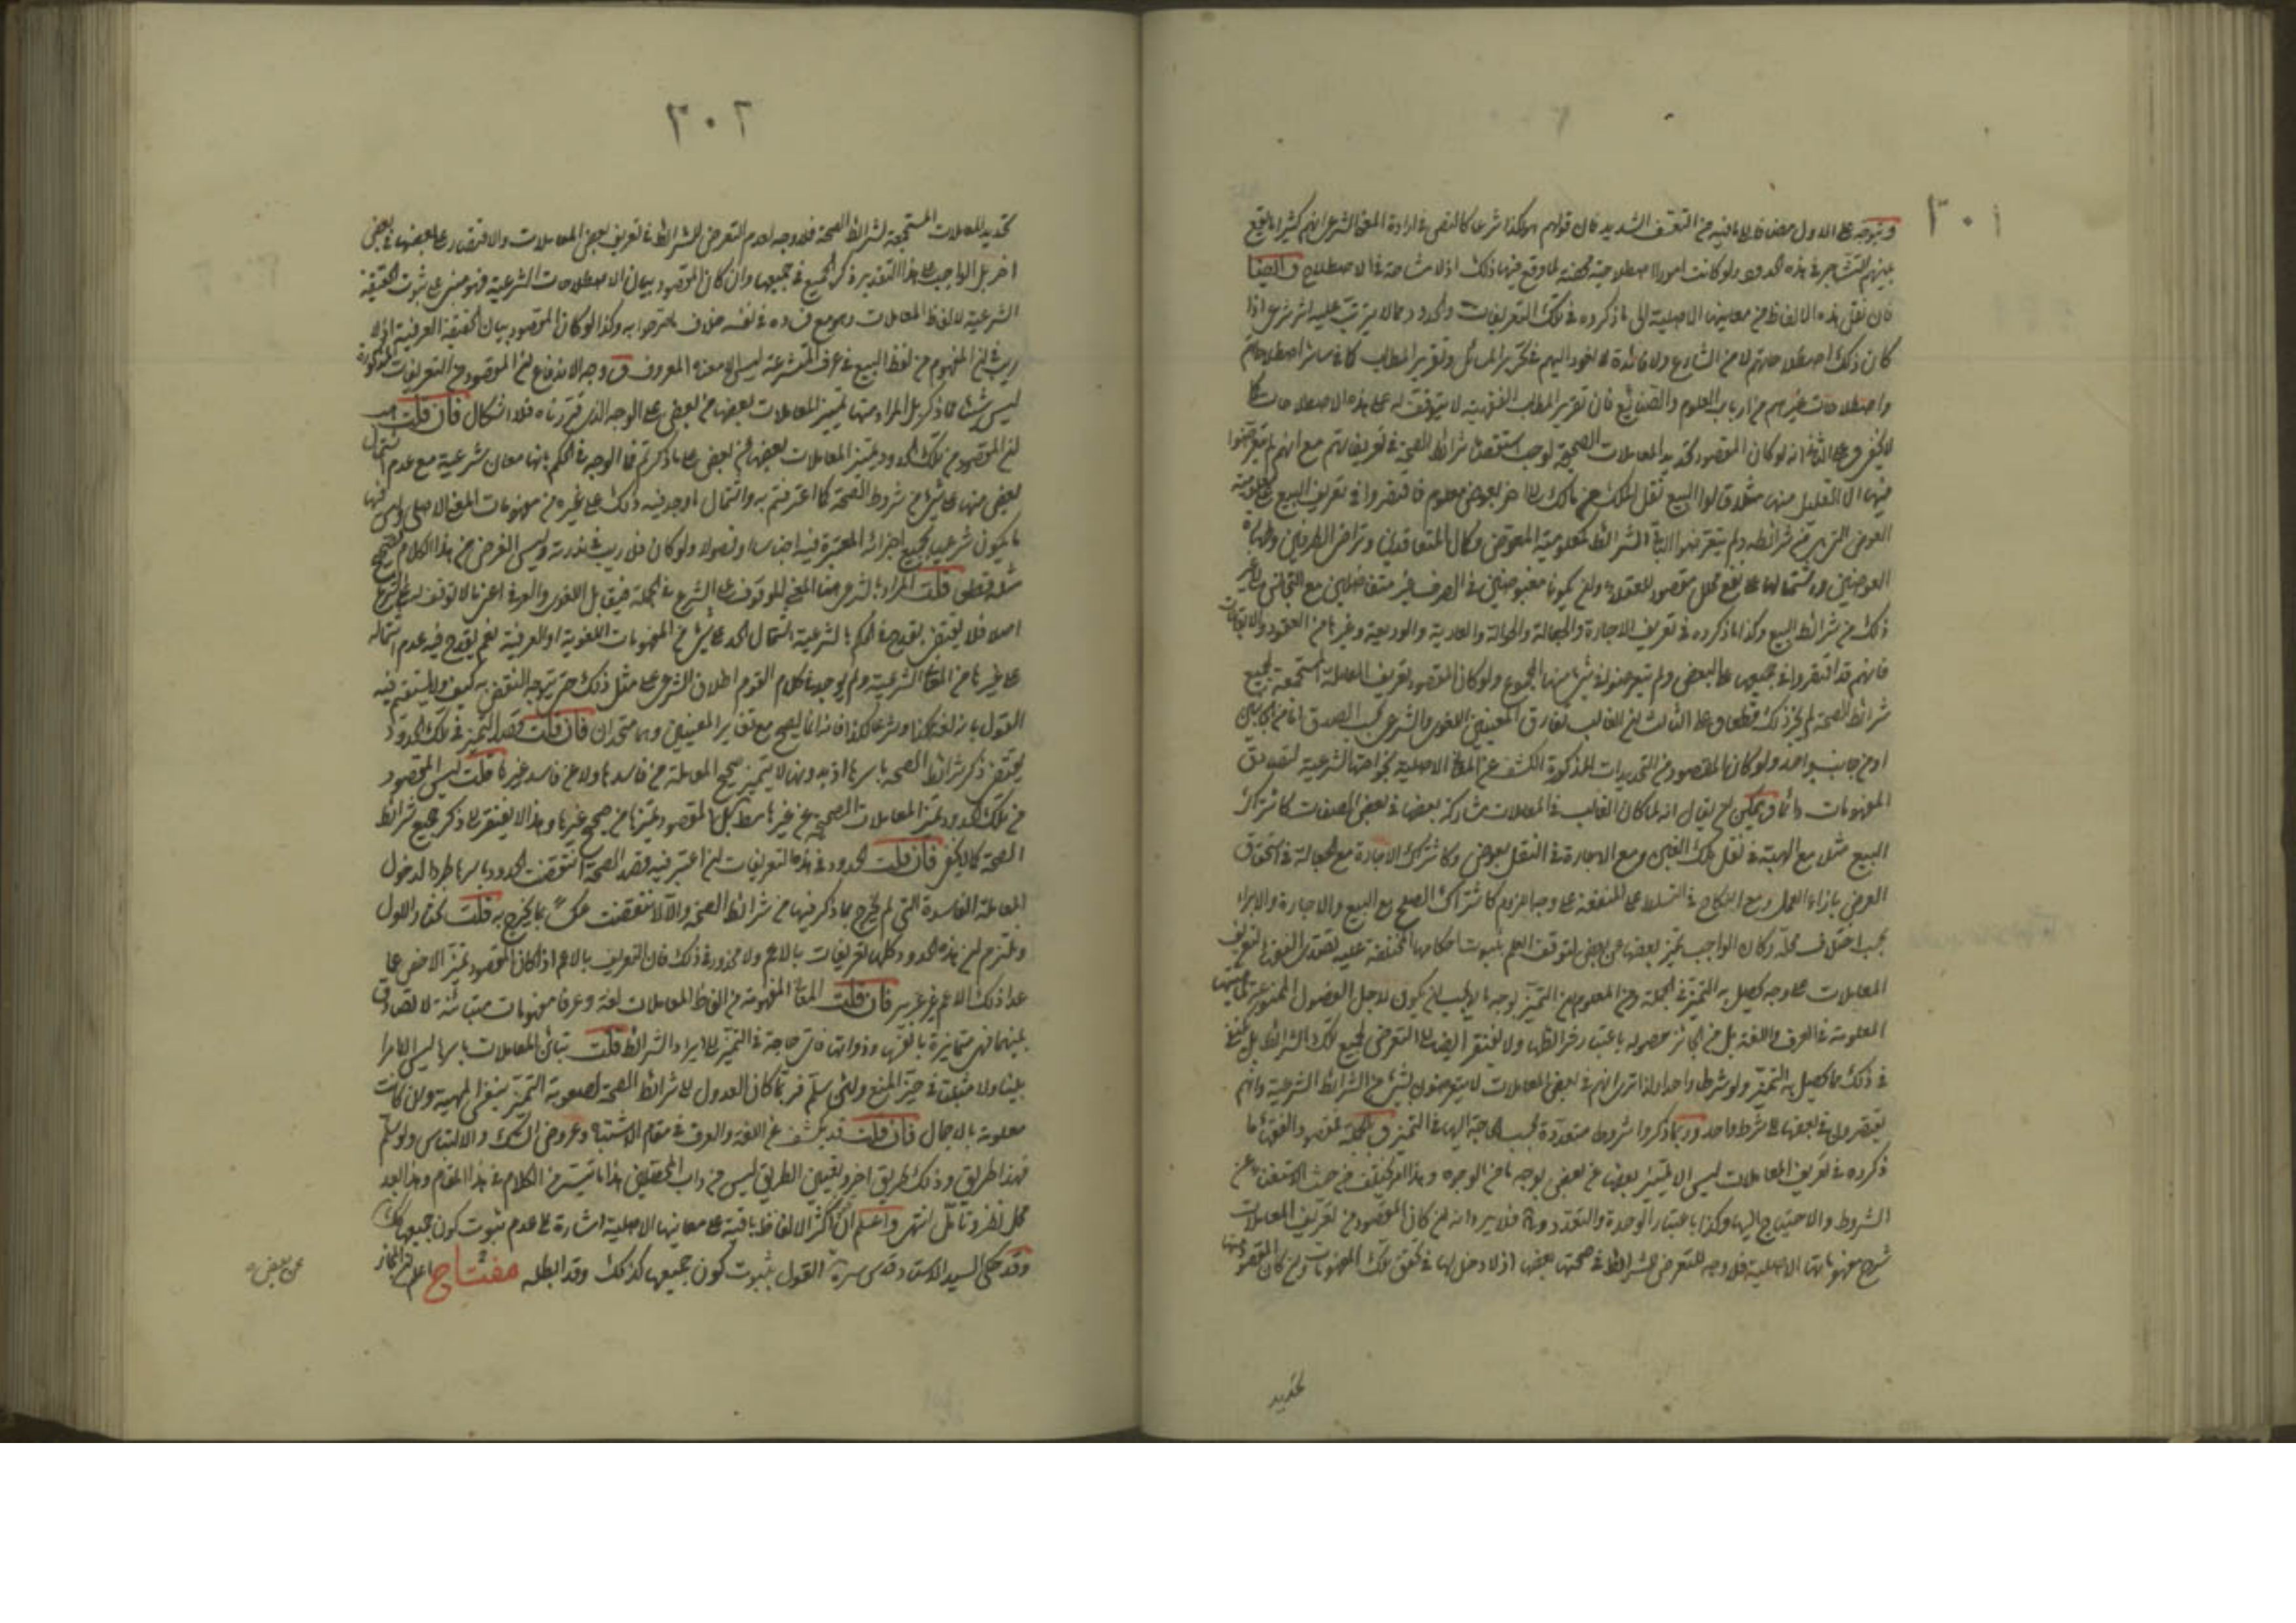 ٣٠١
ويتوجه على الاول مضافا الى ما فيه من التعسف الشديد فان قولهم هو كذا شرعا كالنص في ارادة المعنى الشرعي انهم كثيرا ما يقع
بينهم التشاجر في هذه الحدود ولو كانت امورا اصطلاحية محضة لما وقع فيها ذلك اذ لا مشاحة في الاصطلاح وايضا
فان نقل هذه الالفاظ من معانيها الاصلية الى ما ذكروه في تلك التعريفات والحدود مما لا يترتب عليه اثر شرعي اذا
كان ذلك اصطلاحا منهم لا من الشارع ولا فائدة له تعود اليهم في تحرير المسائل وتقرير المطالب كما في سائر اصطلاحاتهم
واصطلاحات غيرهم من ارباب العلوم والصنائع فان تقرير المطالب الفقهية لا يتوقف له على هذه الاصطلاحات كما
لا يخفى وعلى الثاني انه لو كان المقصود تحديد المعاملات الصحيحة لوجب استقصاء شرائط الصحة في تعريفاتهم مع انهم ما تعرضوا
منها الا القليل منها مثلا قالوا البيع نقل الملك من مالك الى اخر بعوض معلوم فاقتصروا في تعريف البيع على معلومية
العوض التي هي من شرائطه ولم يتعرضوا لباقي الشرائط كمعلومية المعوض وكمال المتعاقدين وتراضي الطرفين وطهارة
العوضين واشتمالهما على نفع محلل مقصود للعقلاء وان يكونا مقبوضين في الصرف غير متفاضلين مع التجانس الى غير
ذلك من شرائط البيع وكذا ما ذكروه في تعريف الاجارة والجعالة والحوالة والعارية والوديعة وغيرها من العقود والايقاعات
فانهم قد اقتصروا في جميعها على البعض ولم يتعرضوا في شيء منها المجموع ولو كان المقصود تعريف المعاملة المستجمعة لجميع
شرائط الصحة لم يجز ذلك قطعا وعلى الثالث ان الغالب تفارق المعنيين اللغوي والشرعي بحسب الصدق اما من الجانبين
او من جانب واحد ولو كان المقصود من التحديدات المذكورة الكشف عن المعاني الاصلية بخواصها الشرعية لتصادق
المفهومات دائما ويمكن ان يقال انه لما كان الغالب في المعاملات مشاركة بعضها في بعض الصفات كاشتراك
البيع مثلا مع الهبة في نقل ملك العين ومع الاجارة في النقل بعوض وكاشتراك الاجارة مع الجعالة في استحقاق
العوض بازاء العمل ومع النكاح في التسلط على المنفعة على وجه اللزوم وكاشتراك الصلح مع البيع والاجارة والابراء
بحسب اختلاف محله وكان الواجب تميز بعضها عن بعض لتوقف العلم بثبوت احكامها المختلفة عليه تصدى الفقهاء لتعريف
المعاملات على وجه يحصل به التميز في الجملة ومن المعلوم ان التميز بوجه ما لا يجب ان يكون لاجل الفصول المنوعة لماهيتها
المعلومة في العرف واللغة بل من الجائز حصوله باعتبار شرائطها ولا يفتقر ايضا الى التعرض لجميع تلك الشرائط بل يكفي
في ذلك ما يحصل به التميز ولو شرطا واحدا ولذا ترى انهم في بعض المعاملات لا يتعرضون لشيء من الشرائط الشرعية وانهم
يقتصرون في بعضها على شرط واحد وربما ذكروا شروطا متعددة بحسب الحاجة اليها في التميز وبالجملة مقصود الفقهاء مما
ذكروه في تعريف المعاملات ليس الا تمييز بعضها عن بعض بوجه ما من الوجوه وهذا امر يختلف من حيث الاستغناء عن
الشروط والاحتياج اليها وكذا باعتبار الوحدة والتعدد فلا يرد انه ان كان المقصود من تعريف المعاملات
شرح مفهوماتها الاصلية فلا وجه للتعرض للشرائط في صحتها بعضها اذ لا دخل لها في تحقق تلك المفهومات وان كان المقصود منها
تحديد
٣٠٢
تحديد المعاملات المستجمعة لشرائط الصحة فلا وجه لعدم التعرض للشرائط في تعريف بعض المعاملات والاقتصار على بعضها في بعض
اخر بل الواجب على هذا التقدير ذكر الجميع في جميعها وان كان المقصود بيان الاصطلاحات الشرعية فهو مبني على ثبوت الحقيقة
الشرعية لالفاظ المعاملات وهو مع فساده في نفسه خلاف ما صرحوا به وكذا لو كان المقصود بيان الحقيقة العرفية اذ لا
ريب في ان المفهوم من لفظ البيع في عرف المتشرعة ليس الا معناه المعروف ووجه الاندفاع ان المقصود من التعريفات المذكورة
ليس شيئا مما ذكر بل المراد منها تمييز المعاملات بعضها من بعض على الوجه الذي قررناه فلا اشكال فان قلت هب
ان المقصود من تلك الحدود تميز المعاملات بعضها من بعض على ما ذكرتم فما الوجه في الحكم بانها معان شرعية مع عدم اشتمال
بعض منها على شيء من شروط الصحة كما اعترفتم به واشتمال ما وجد فيه ذلك على غيره من مفهومات المعنى الاصلي وليس فيها
ما يكون شرعيا بجميع اجزائه المعتبرة فيه اجناسا وفصولا ولو كان فلا ريب في ندرته وليس الغرض من هذا الكلام تصحيح
مثله قطعا قلت المراد بالشرعي هنا المعنى الموقوف على الشرع في الجملة فيقابل اللغوي والعرفي اعني ما لا توقف له على الشرع
اصلا فلا يقدح في الحكم بالشرعية اشتمال الحد على شيء من المفهومات اللغوية او العرفية نعم يقدح فيه عدم اشتماله
على غيرها من المعاني الشرعية ولم يوجد في كلام القوم اطلاق الشرعي على مثل ذلك حتى يتوجه النقض به كيف ولا يستقيم فيه
القول بانه لغة كذا وشرعا كذا فانه انما يصح مع تغاير المعنيين وهما متحدان فان قلت قصد التميز في تلك الحدود
يقتضي ذكر شرائط الصحة باسرها اذ بدونها لا يتميز صحيح المعاملة من فاسدها ولا من فاسد غيرها قلت ليس المقصود
من تلك الحدود تميز المعاملات الصحيحة عن غيرها مطلقا بل المقصود تميزها من صحيح غيرها وهذا لا يفتقر الى ذكر جميع شرائط
الصحة كما لا يخفى فان قلت الحدود في هذه التعريفات ان اعتبر فيه قصد الصحة انتقضت الحدود باسرها طردا لدخول
المعاملة الفاسدة التي لم تخرج بما ذكر فيها من شرائط الصحة والا لانتقضت عكسا بما يخرج به قلت نختار الاول
ونلتزم ان هذه الحدود كلها تعريفات بالاعم ولا محذور في ذلك فان التعريف بالاعم اذا كان المقصود تميز الاخص عما
عدا ذلك الاعم غير عزيز فان قلت المعاني المفهومة من الفاظ المعاملات لغة وعرفا مفهومات متباينة لا تصادق
بينها فهي متمايزة بانفسها وذواتها فاي حاجة في التميز الى ايراد الشرائط قلت تباين المعاملات باسرها ليس امرا
بينا ولا مثبتا في حيز المنع ولئن سلم فربما كان العدول الى شرائط الصحة لصعوبة التميز بنفس المهية وان كانت
معلومة بالاجمال فان قلت قد يكشف عن اللغة والعرف في مقام الاشتباه وعروض الشك والالتباس ولو سلم
فهذا طريق وذلك طريق اخر وتعيين الطريق ليس من داب المحصلين هذا ما تيسر من الكلام في هذا المقام وهذا بعد
محل نظر وتأمل انتهى واعلم ان اكثر الالفاظ باقية على معانيها الاصلية اشارة الى عدم ثبوت كون جميعها كذلك
وقد حكى السيد الاستاد قدس سره القول بثبوت كون جميعها كذلك وقد ابطله مفتاح اعلم ان المجاز
عن بعض